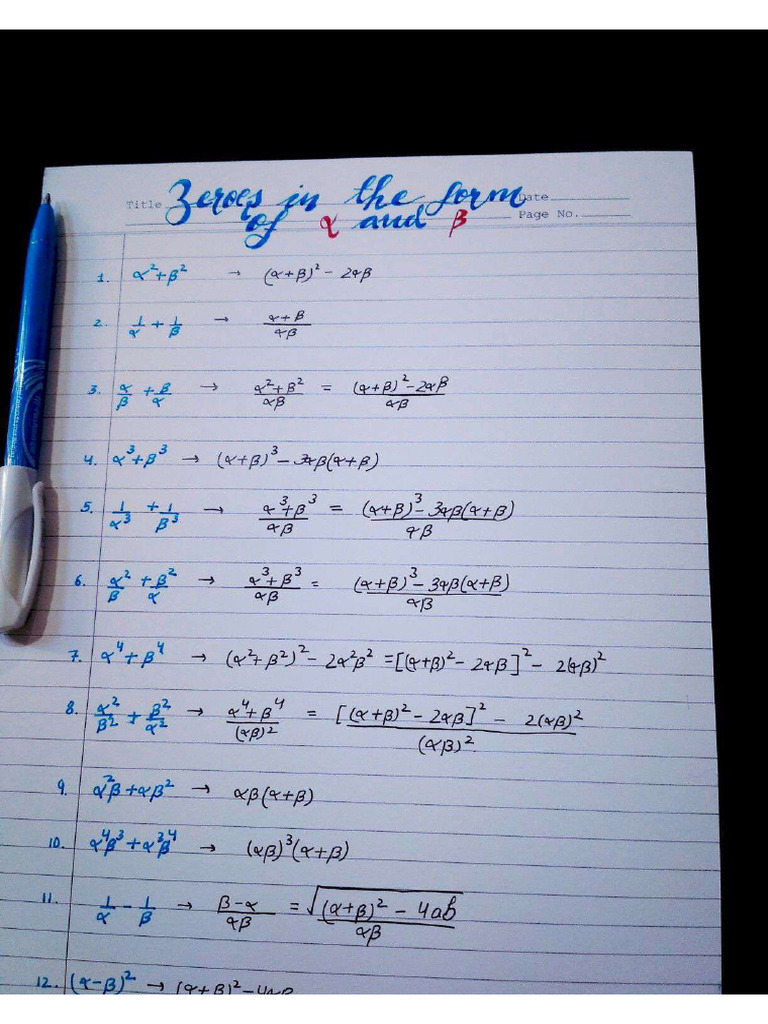 Title Zeroes in the form Date
of α and β Page No.
1. α²+β² → (α+β)² - 2αβ
2. 1/α + 1/β → α+β/αβ
3. α/β + β/α → α²+β²/αβ = (α+β)²-2αβ/αβ
4. α³+β³ → (α+β)³-3αβ(α+β)
5. 1/α³ + 1/β³ → α³+β³/αβ = (α+β)³-3αβ(α+β)/αβ
6. α²/β + β²/α → α³+β³/αβ = (α+β)³-3αβ(α+β)/αβ
7. α⁴+β⁴ → (α²+β²)²-2α²β² = [(α+β)²-2αβ]²- 2(αβ)²
8. α²/β² + β²/α² → α⁴+β⁴/(αβ)² = [(α+β)²-2αβ]² - 2(αβ)²/(αβ)²
9. α²β+αβ² → αβ(α+β)
10. α⁴β³+α³β⁴ → (αβ)³(α+β)
11. 1/α - 1/β → β-α/αβ = √(α+β)² - 4ab/αβ
12. (α-β)² → (α+β)²-4αβ